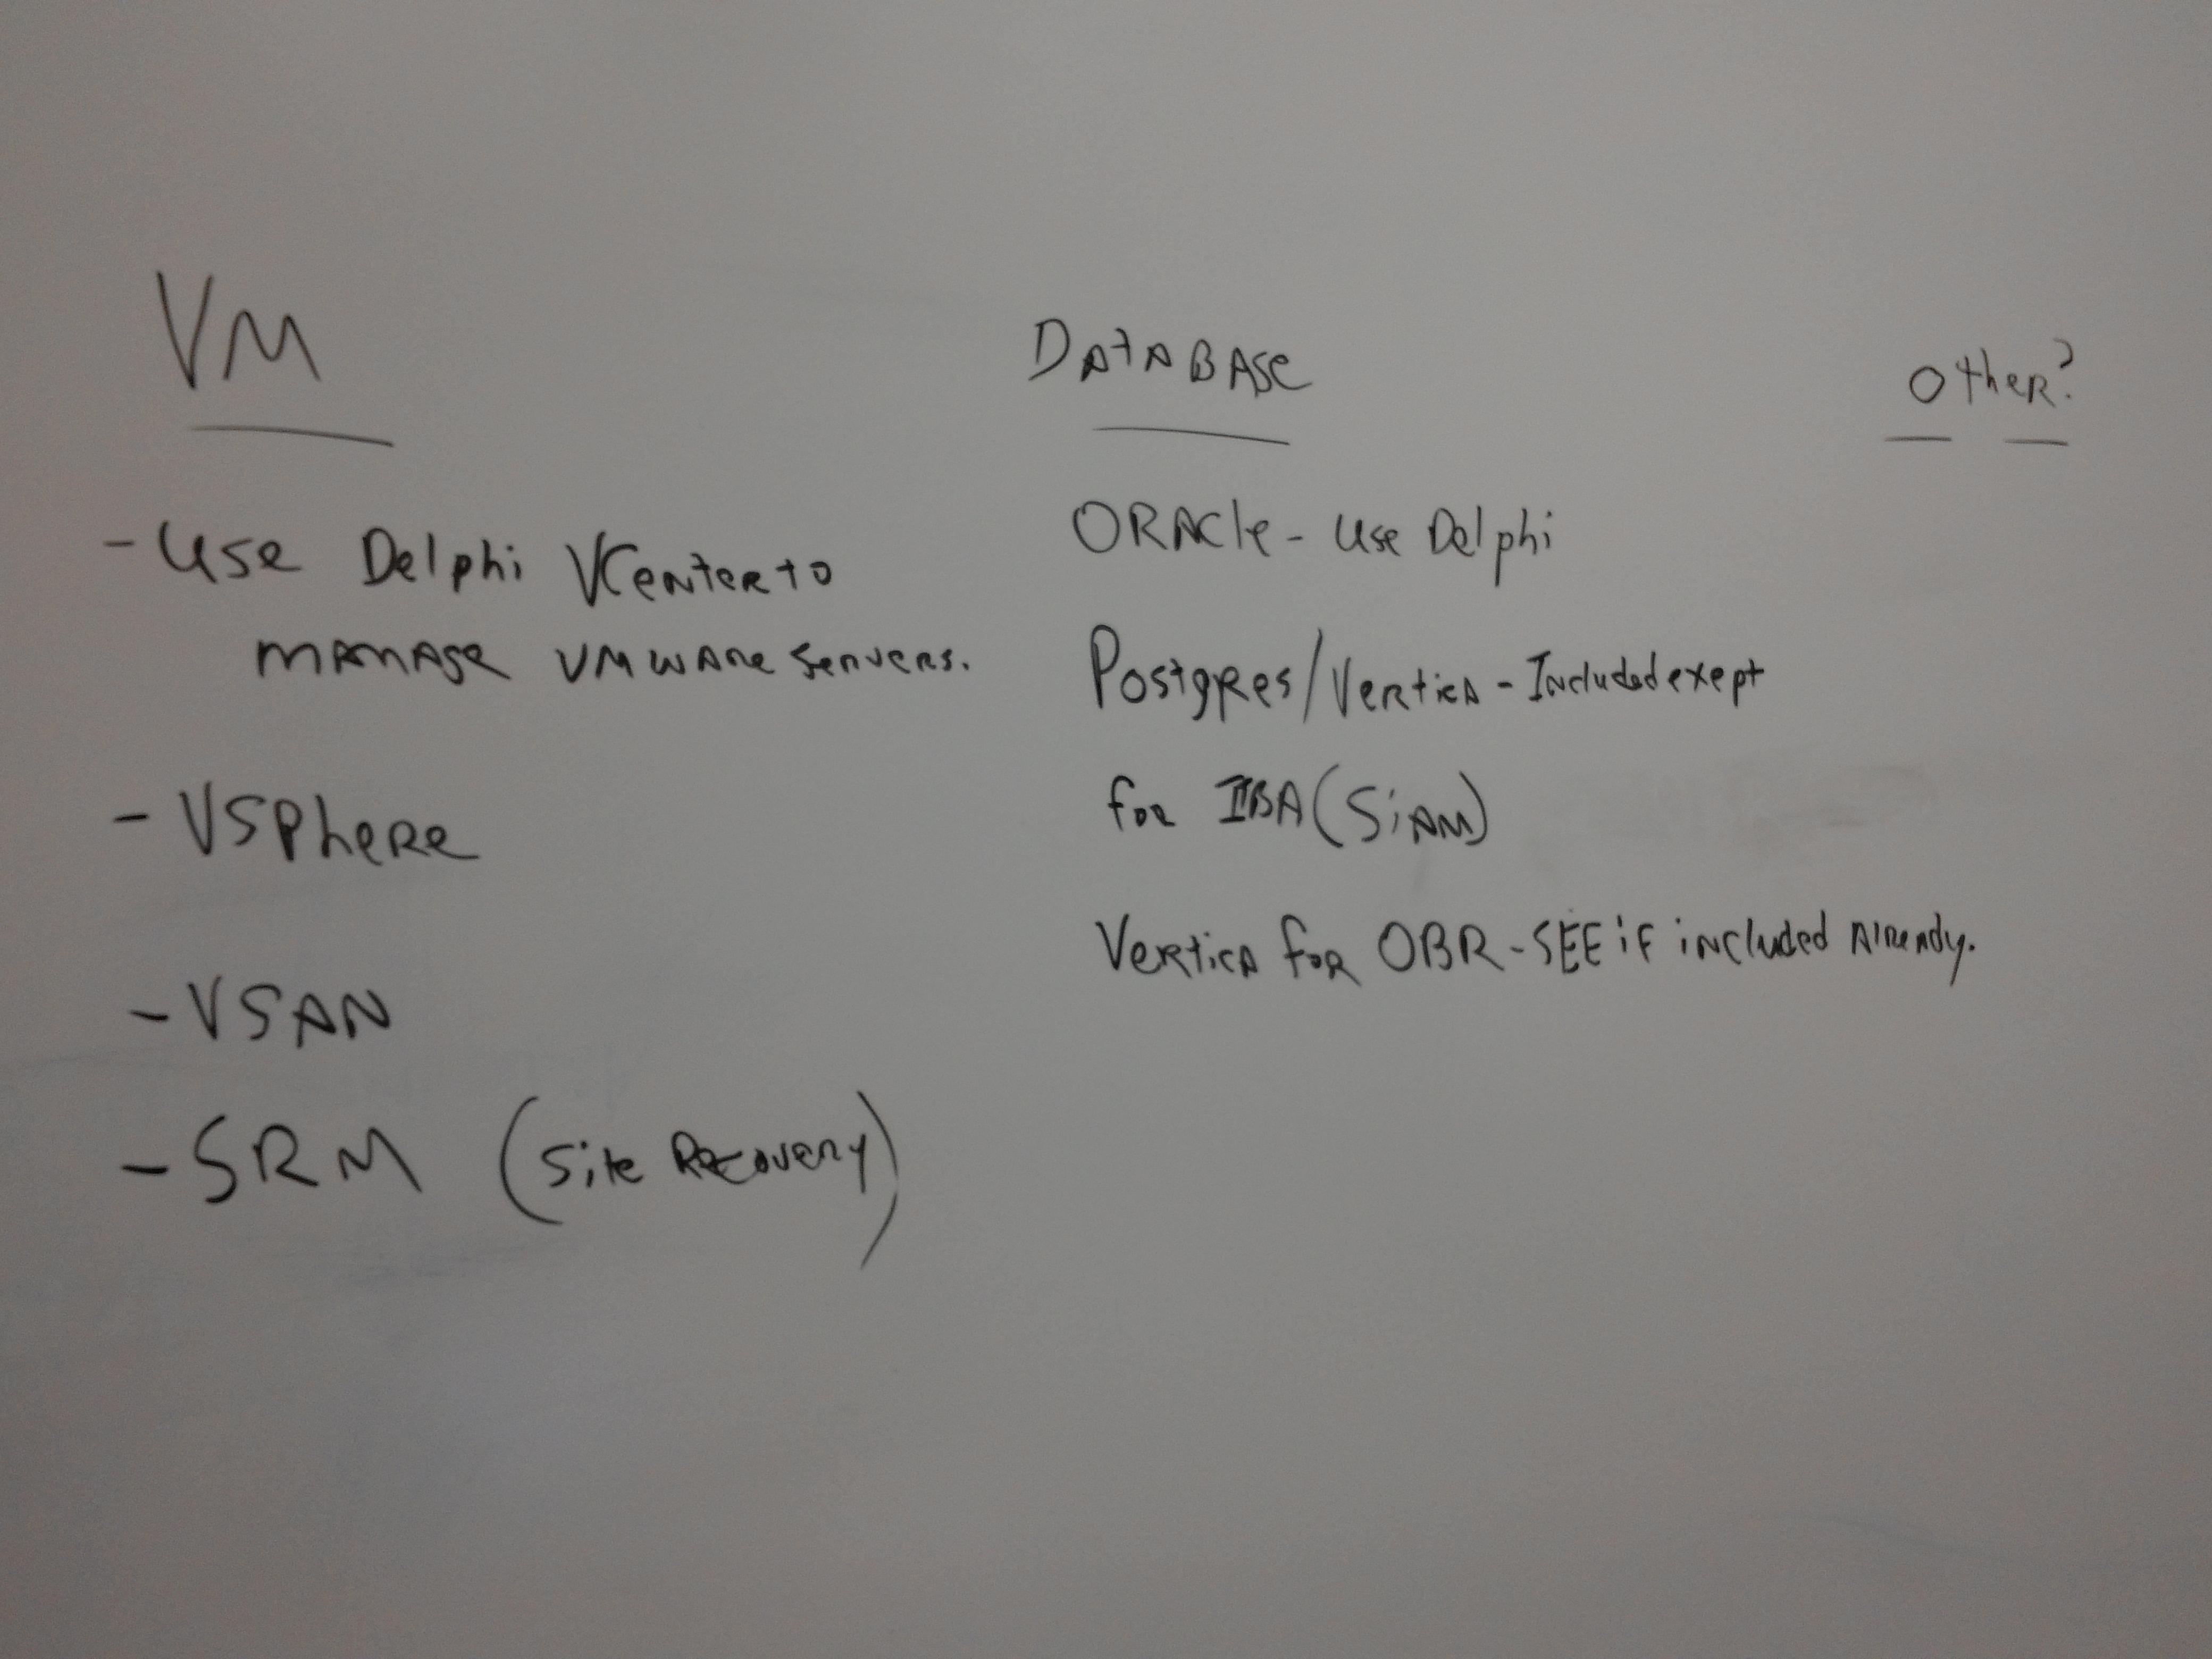 VM
- Use Delphi VCenter to
manage VMware servers.
- VSphere
- VSAN
- SRM (Site Recovery)
DATABASE
ORACle - Use Delphi
Postgres/Vertica - Included exept
for IBA (SiAM)
Vertica for OBR - SEE if included Already.
Other?